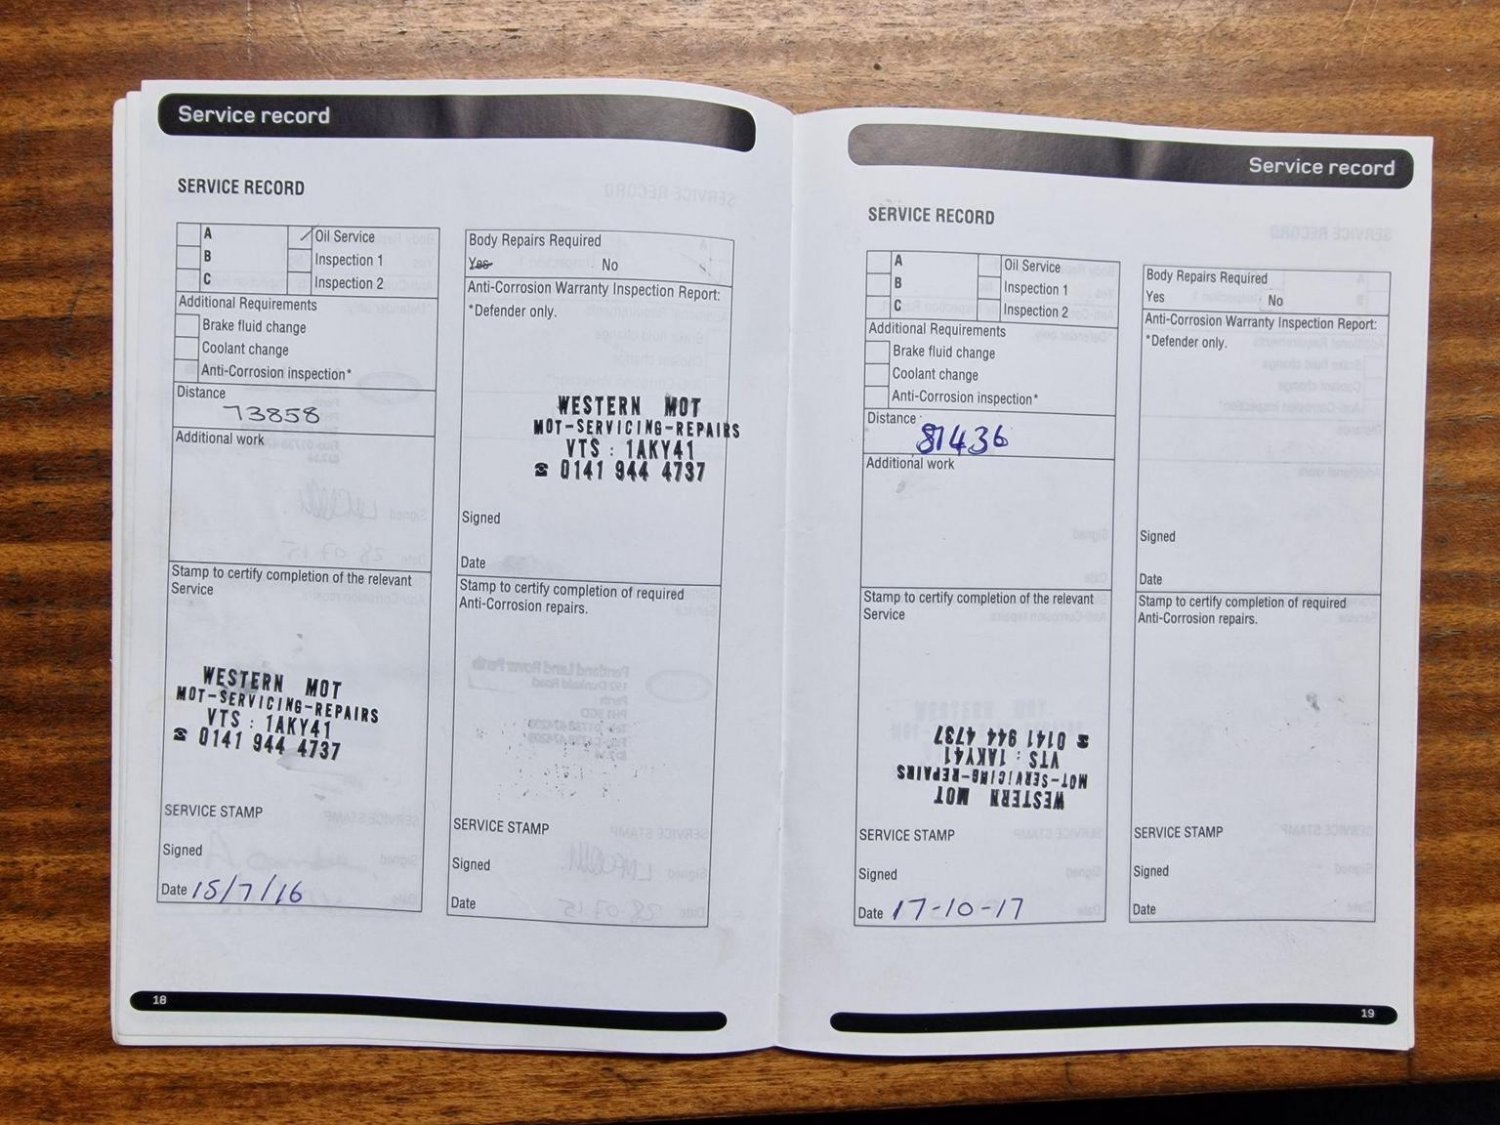 Service record
SERVICE RECORD
A
Oil Service
B
Inspection 1
C
Inspection 2
Additional Requirements
Brake fluid change
Coolant change
Anti-Corrosion inspection*
Distance
73858
Additional work
Stamp to certify completion of the relevant
Service
WESTERN MOT
MOT-SERVICING-REPAIRS
VTS : 1AKY41
☎ 0141 944 4737
SERVICE STAMP
Signed
Date 15/7/16
Body Repairs Required
Yes No
Anti-Corrosion Warranty Inspection Report:
*Defender only.
WESTERN MOT
MOT-SERVICING-REPAIRS
VTS : 1AKY41
☎ 0141 944 4737
Signed
Date
Stamp to certify completion of required
Anti-Corrosion repairs.
SERVICE STAMP
Signed
Date
18
Service record
SERVICE RECORD
A
Oil Service
B
Inspection 1
C
Inspection 2
Additional Requirements
Brake fluid change
Coolant change
Anti-Corrosion inspection*
Distance
81436
Additional work
Stamp to certify completion of the relevant
Service
WESTERN MOT
MOT-SERVICING-REPAIRS
VTS : 1AKY41
☎ 0141 944 4737
SERVICE STAMP
Signed
Date 17-10-17
Body Repairs Required
Yes No
Anti-Corrosion Warranty Inspection Report:
*Defender only.
Signed
Date
Stamp to certify completion of required
Anti-Corrosion repairs.
SERVICE STAMP
Signed
Date
19